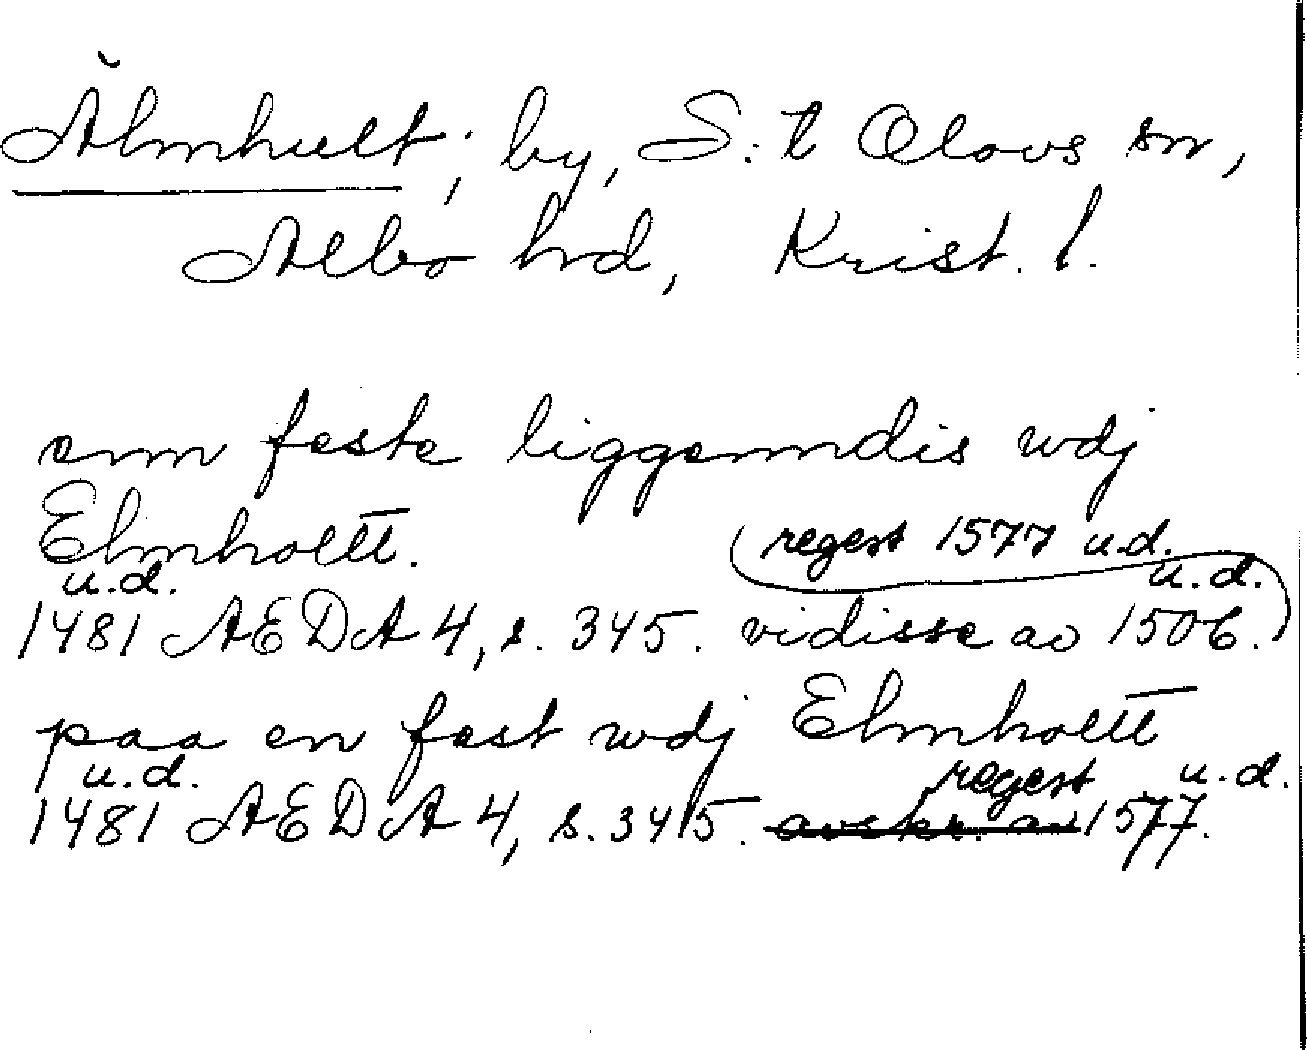 Älmhult; by, S:t Olovs sn,
Albo hrd, Krist. l.
enn feste liggenndis wdj
Elmholtt.
regest 1577 u.d.
u.d. u.d.
1481 AEDA 4, s. 345. vidisse av 1506.
paa en fest wdj Elmholtt
u.d. regest u.d.
1481 AEDA 4, s. 345. avskr. av 1577.